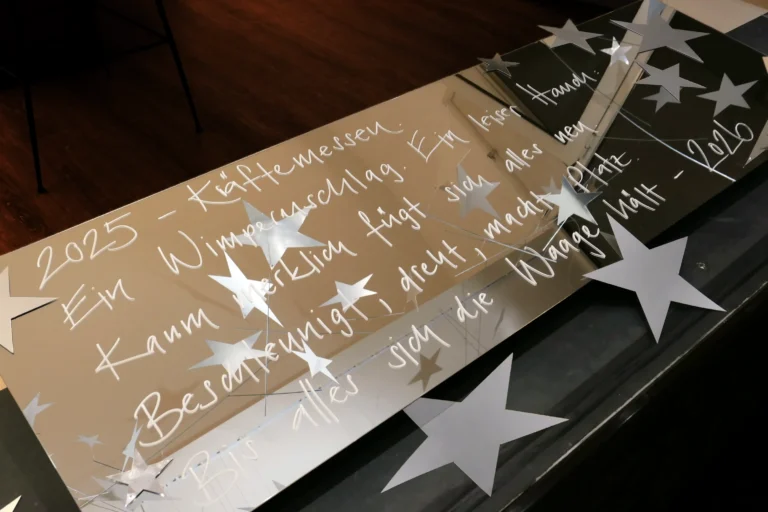 2025 - Kräftemessen.
Ein Wimpernschlag. Ein leiser Hauch.
Kaum merklich fügt sich alles neu
Beschleunigt, dreht, macht Platz.
Bis alles sich die Waage hält - 2026